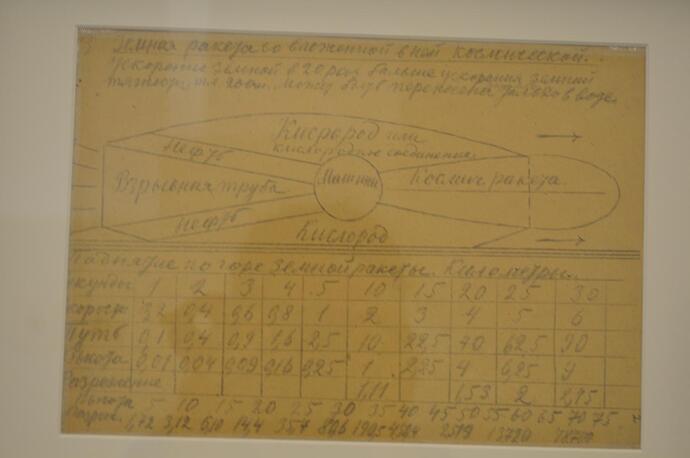 Земная ракета со вложенной в ней Космической.
Ускорение земной в 20 раз больше ускорения земной
тяжести, т.е. 200 м. Может быть перенос
Кислород или
кислородное соединение.
Нефть
Взрывная труба
Машины
Космич. ракета.
Нефть
Кислород
Поднятие по горе Земной ракеты. Километры.
Секунды 1 2 3 4 5 10 15 20 25 30
Скорость 0,2 0,4 0,6 0,8 1 2 3 4 5 6
Путь 0,1 0,4 0,9 1,6 2,5 10 22,5 40 62,5 90
Высота 0,01 0,04 0,09 0,16 0,25 1 2,25 4 6,25 9
Разрежение 1,11 1,53 2 2,75
Высота 5 10 15 20 25 30 35 40 45 50 55 60 65 70 75
Разреж. 1,72 3,12 6,10 14,4 35,7 2519 13720